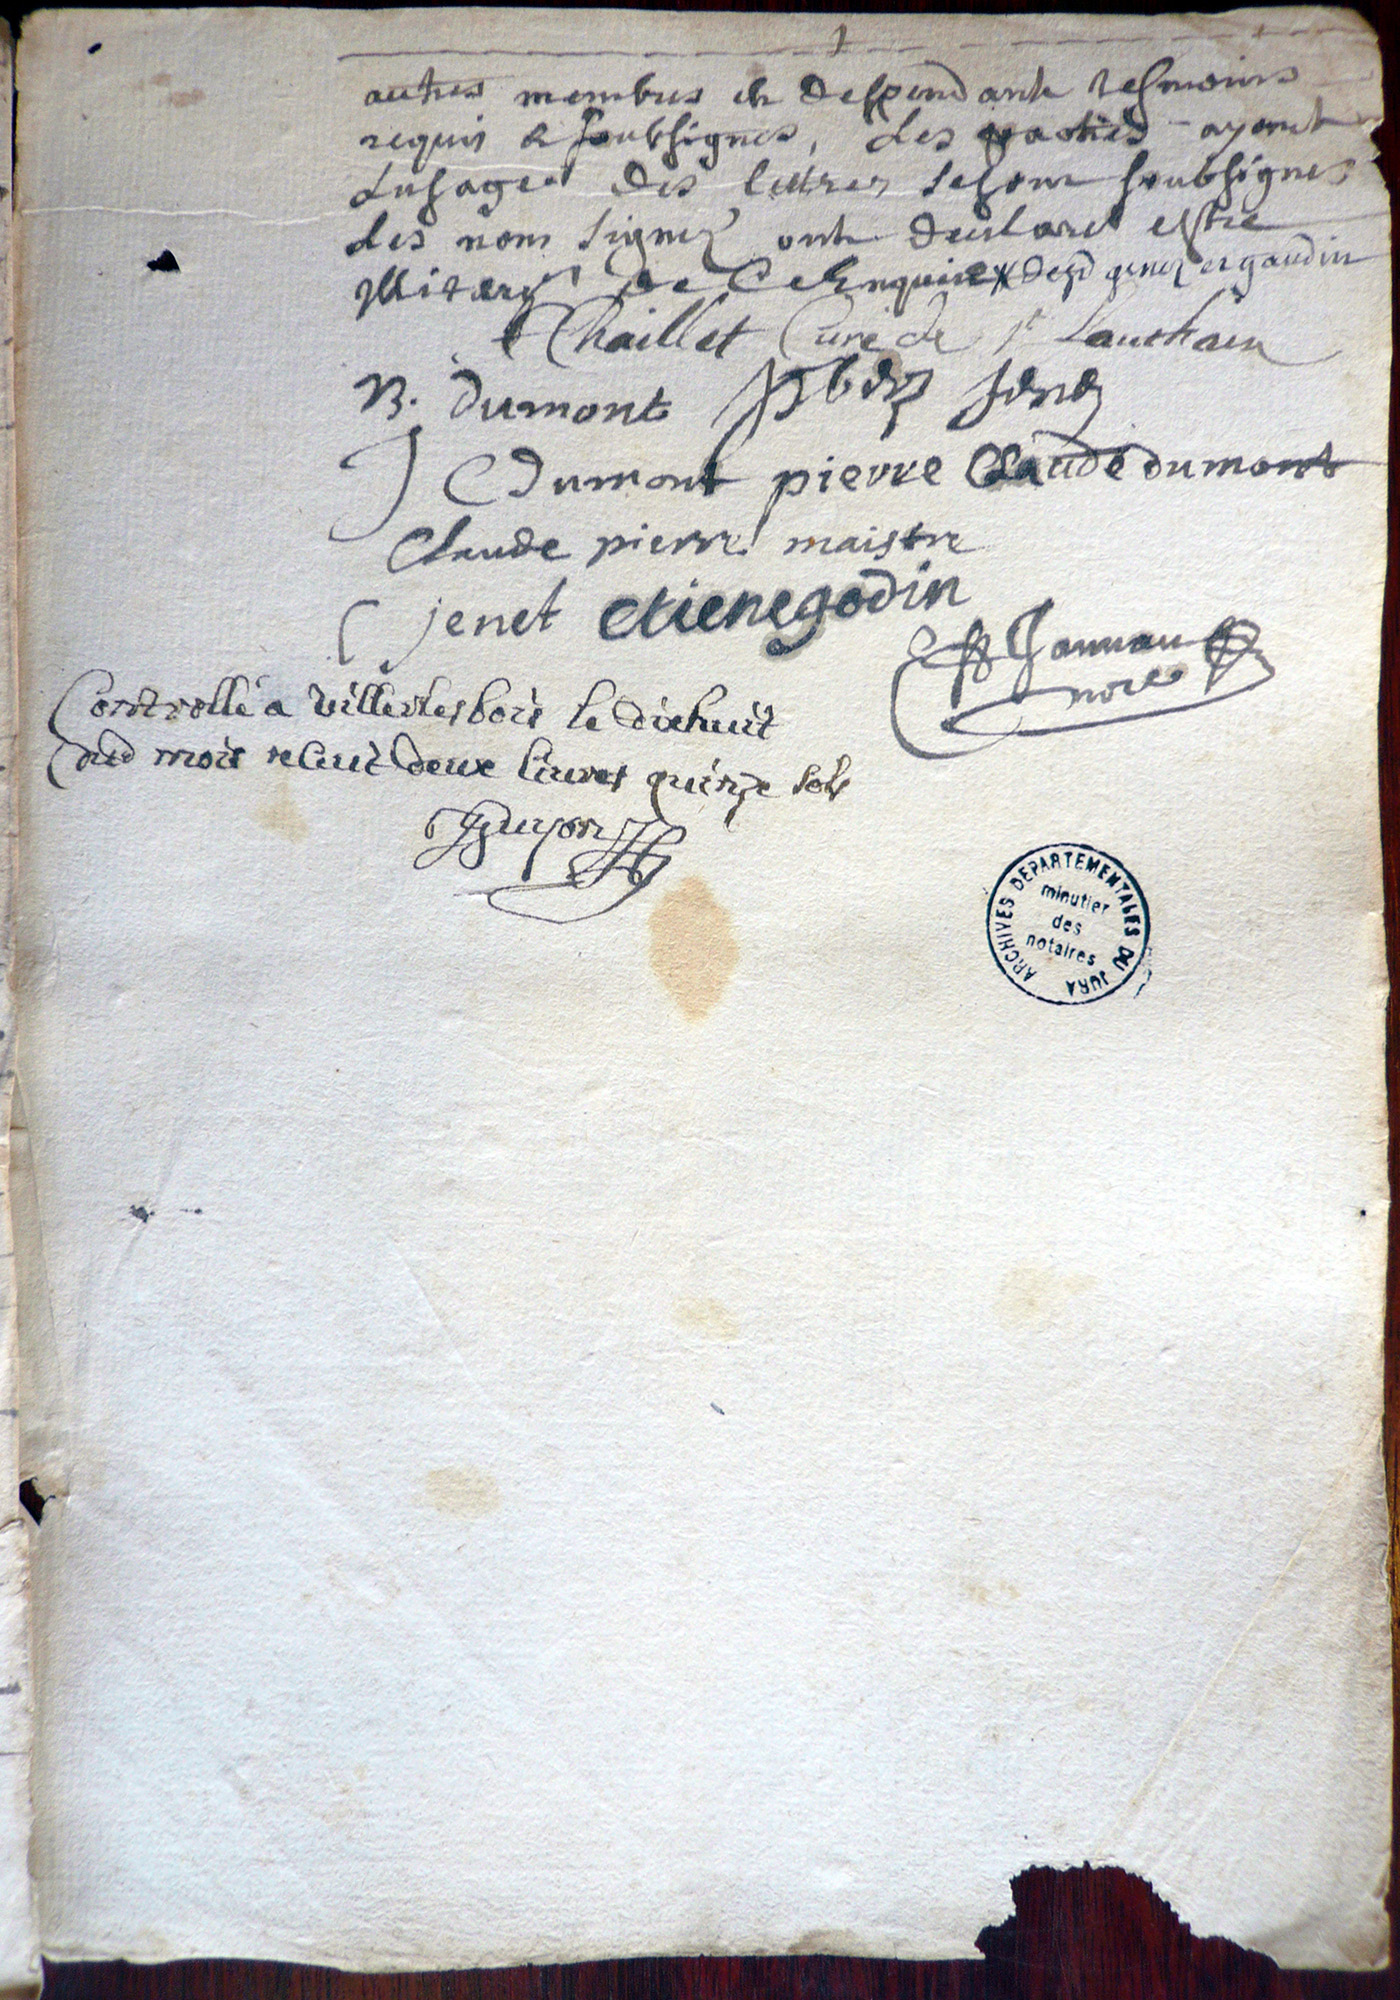 autres membres et despendants tesmoins
requis & soubsignes, Les parties ayant
Lusage des lettres sesont soubsignes
les non signez ont declaré estre
illiterez de ce enquis desd genez et gaudin
Chaillet Curé de st Lauthain
B. dumont jenez
J C dumont pierre Claude dumont
Claude pierre maistre
C jenet etienegodin
Jannau
nore
Controllé a villerlesbois le dixhuit
dud mois reçuit deux livres quinze sols
Guyon
ARCHIVES DEPARTEMENTALES DU JURA
minutier
des
notaires